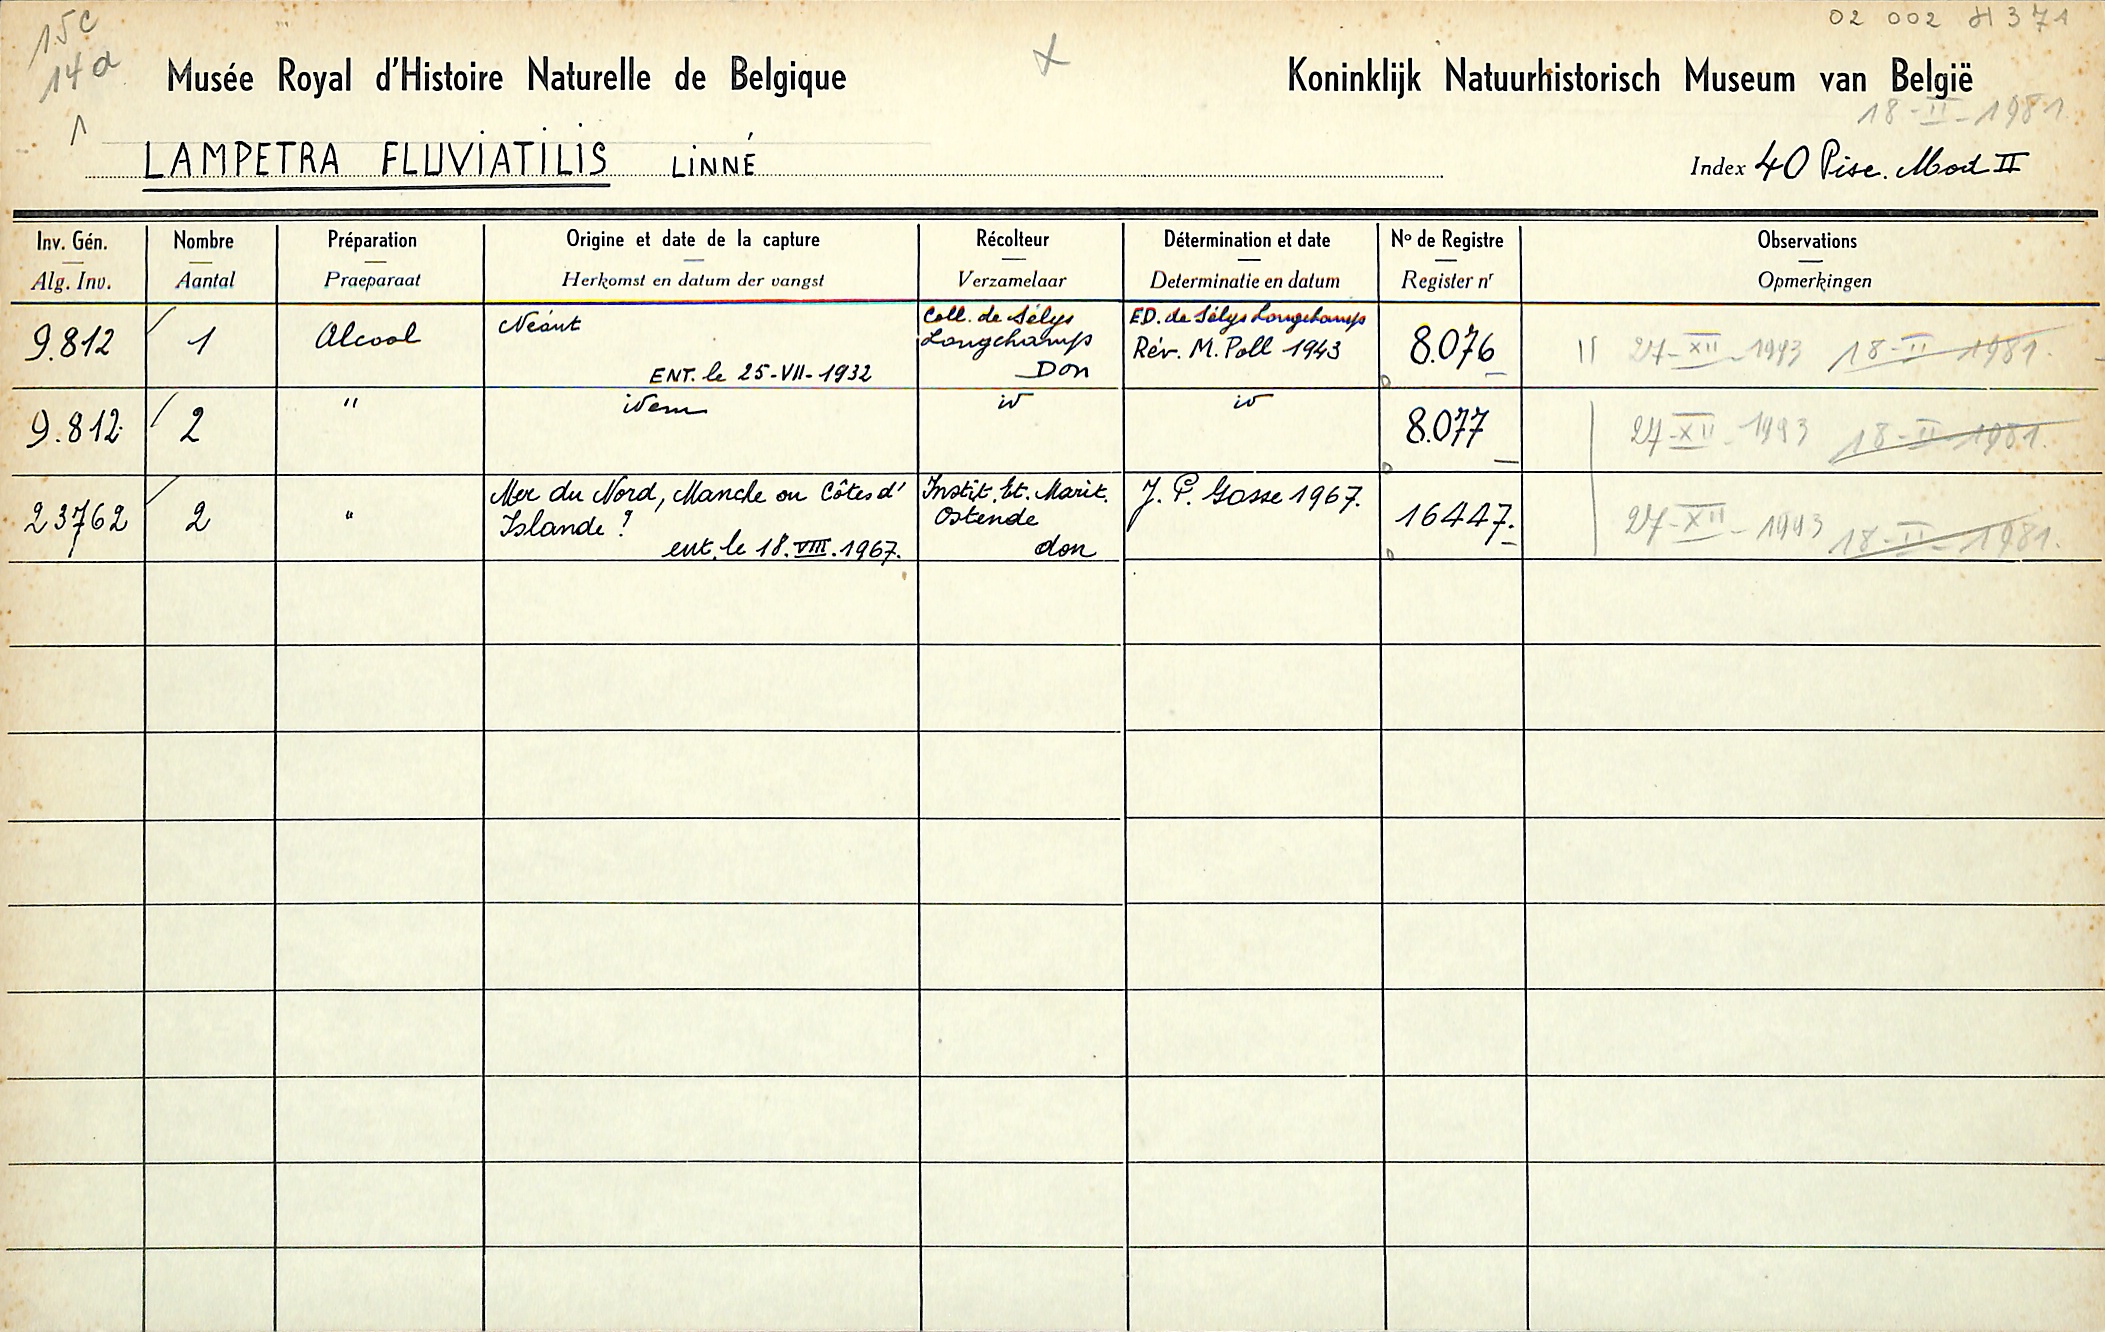 15c
14a
1
02 002 H 371
Musée Royal d'Histoire Naturelle de Belgique
Koninklijk Natuurhistorisch Museum van België
18-II-1981.
LAMPETRA FLUVIATILIS LINNÉ
Index 40 Pisc. Mod II
Inv. Gén. Nombre Préparation Origine et date de la capture Récolteur Détermination et date No de Registre Observations
Alg. Inv. Aantal Praeparaat Herkomst en datum der vangst Verzamelaar Determinatie en datum Register nr Opmerkingen
9.812 1 Alcool Néant
ENT. le 25-VII-1932
Coll. de Sélys
Longchamps
Don
ED. de Sélys Longchamps
Rév. M. Poll 1943
8.076 27-XII-1993 18-II-1981.
9.812 2 " idem id id 8.077 27-XII-1993 18-II-1981.
23762 2 " Mer du Nord, Manche ou Côtes d'
Islande ?
ent. le 18.VIII.1967.
Instit. Et. Marit.
Ostende
don
J. P. Gosse 1967.
16447. 27-XII-1993 18-II-1981.